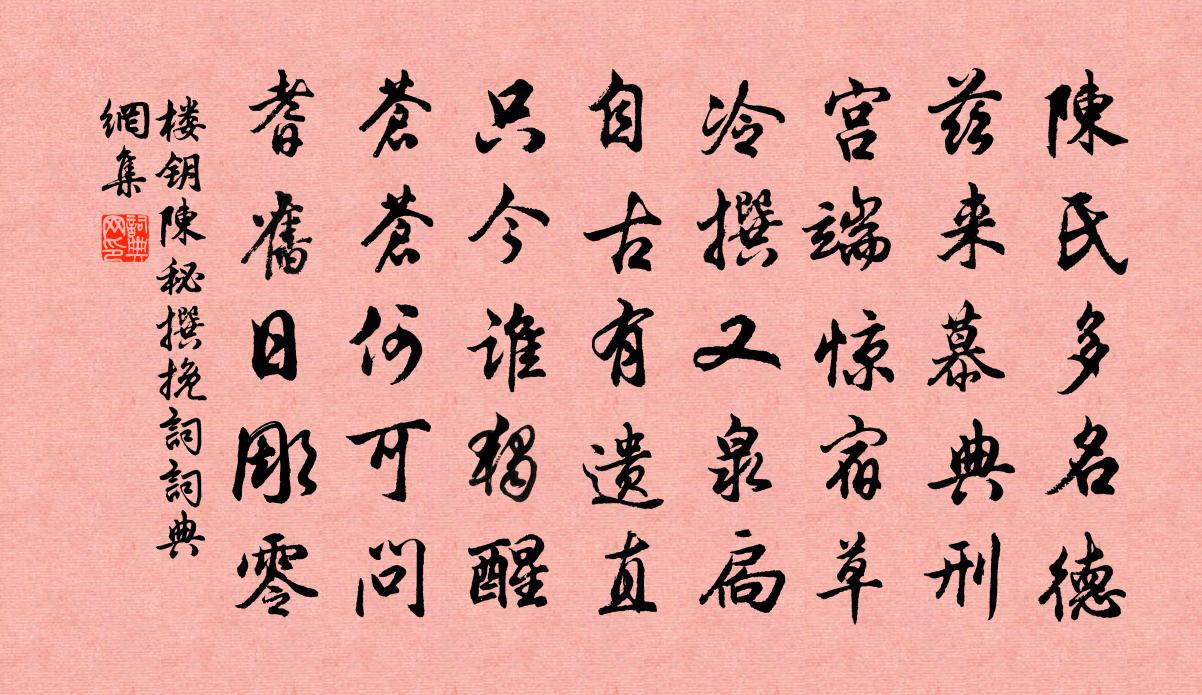 陳氏多名德
兹来慕典刑
宫端惊宿草
冷撰又泉扃
自古有遗直
只今谁獨醒
蒼蒼何可問
耆舊日彫零
楼钥陳秘撰挽詞詞典
網集
詞典
网印